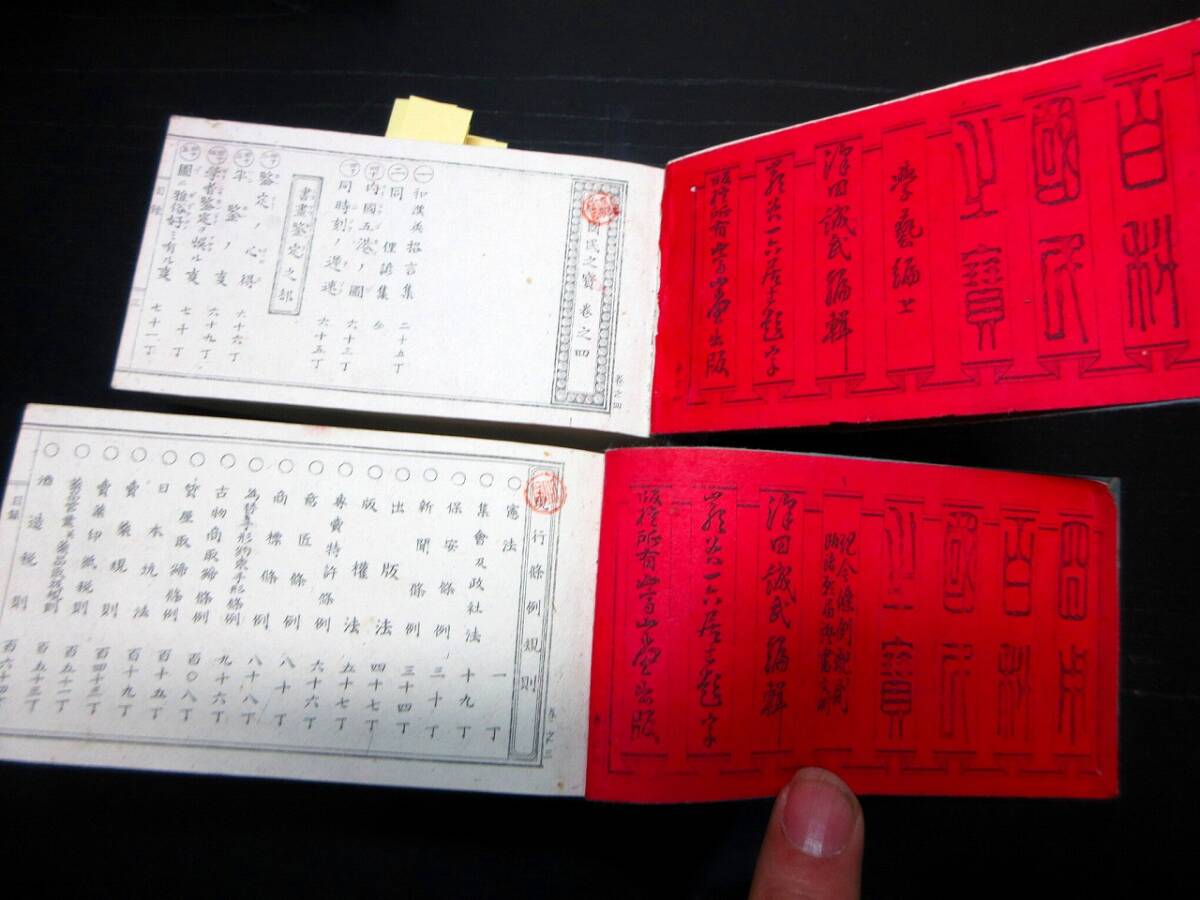 百科
國民
之寶
學藝編上
澤田誠武編輯
巖谷一六居士題字
版權所有嵩山堂出版
國民之寶 卷之四
卷之四
一 和漢英格言集 二十五丁
二 同 俚諺集
内國五港ノ圖 六十三丁
同時刻ノ遅速 六十五丁
書畫鑒定之部
鑒定ノ心得 六十六丁
平鑒ノ變 六十九丁
學者鑒定ヲ誤ル變 七十丁
圖ニ雅俗好ミ有ル變 七十一丁
百科
國民
之寶
現今條例規則
澤田誠武編輯
巖谷一六居士題字
版權所有嵩山堂出版
行條例規則
卷之三
○憲法 一丁
○集會及政社法 十九丁
○保安條例 三十丁
○新聞條例 三十四丁
○出版法 四十七丁
○版權法 五十七丁
○專賣特許條例 六十六丁
○意匠條例 八十丁
○商標條例 八十八丁
○爲替手形約束手形條例 九十六丁
○古物商取締條例 百〇八丁
○質屋取締條例 百十五丁
○日本坑法 百十九丁
○賣藥規則 百四十三丁
○賣藥印紙税則 百五十一丁
○藥品營業並藥品取扱規則 百五十三丁
○酒造税則 百六十四丁
目錄